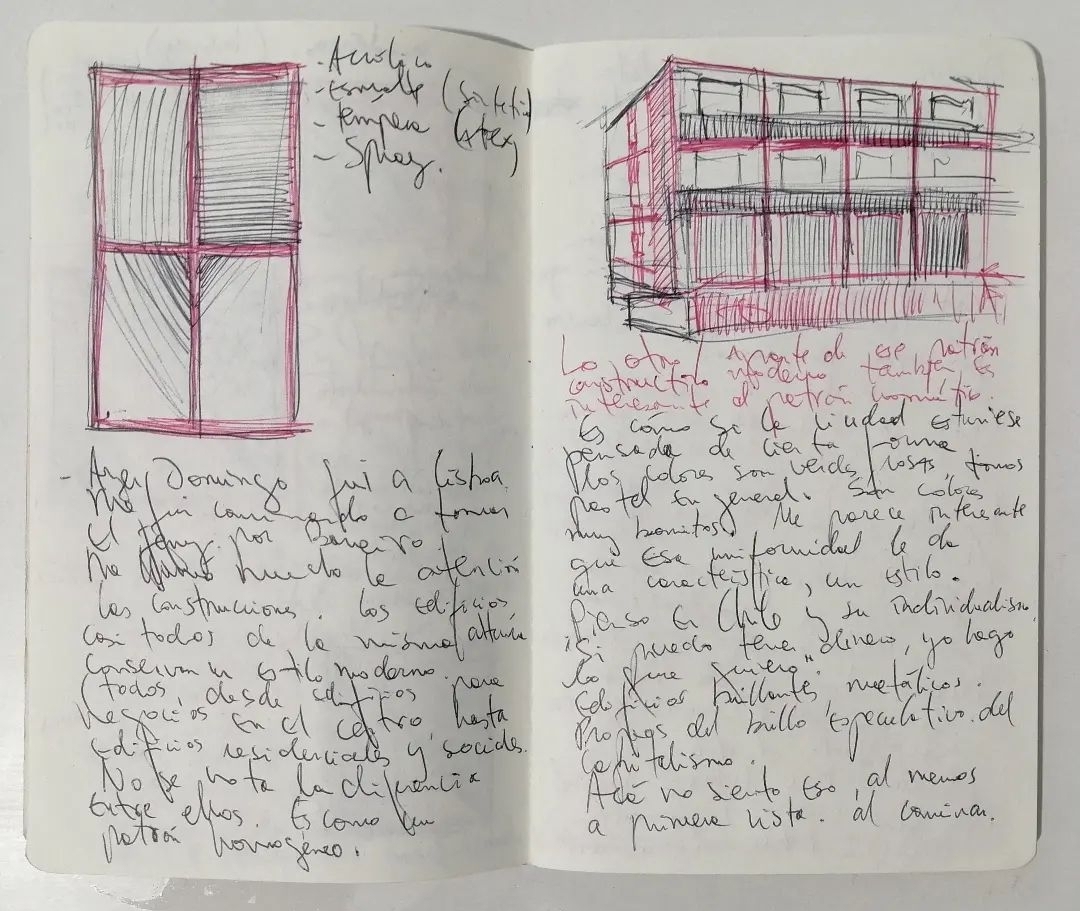 - Acrílico
- Esmalte (sintético)
- témpera (latex)
- Spray.
- Ayer Domingo fui a Lisboa.
Me fui caminando a tomar
el ferry por Barreiro.
Me llamó mucho la atención
las construcciones. los edificios
casi todos de la misma altura
conservan un estilo moderno.
(todos, desde edificios para
negocios en el centro hasta
edificios residenciales y sociales.
No se nota la diferencia
entre ellos. Es como un
patrón homogéneo.
Lo otro, aparte de ese patrón
constructivo moderno también es
interesante el patrón cromático.
Es cómo si la ciudad estuviese
pensada de cierta forma
los colores son verdes, rosas, tonos
pastel en general. Son colores
muy bonitos. Me parece interesante
que esa uniformidad le da
una característica, un estilo.
Pienso en Chile y su individualismo
"Si puedo tener dinero, yo hago
lo que quiero"
edificios brillantes metálicos.
Propios del brillo especulativo del
Capitalismo.
Acá no siento eso, al menos
a primera vista. al caminar.